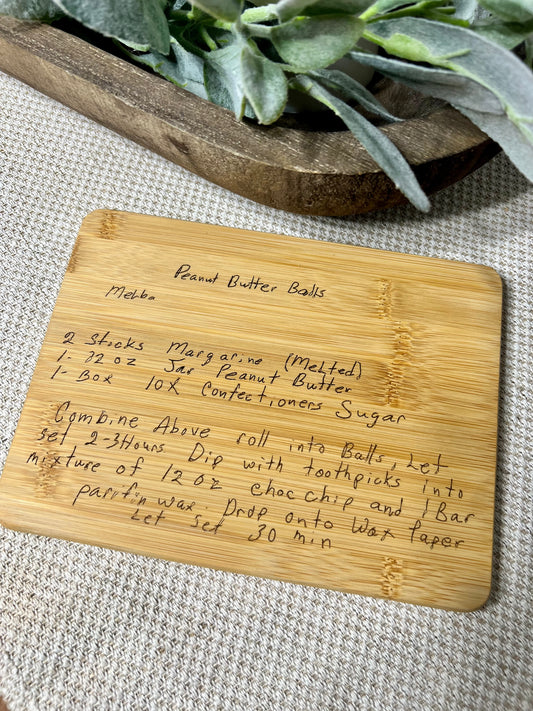 Peanut Butter Balls
Melba
2 Sticks Margarine (Melted)
1- 22 oz Jar Peanut Butter
1- Box 10X Confectioners Sugar
Combine Above roll into Balls, Let
set 2-3 Hours Dip with toothpicks into
mixture of 12 oz choc chip and 1 Bar
parifin wax. Drop onto Wax Paper
Let set 30 min